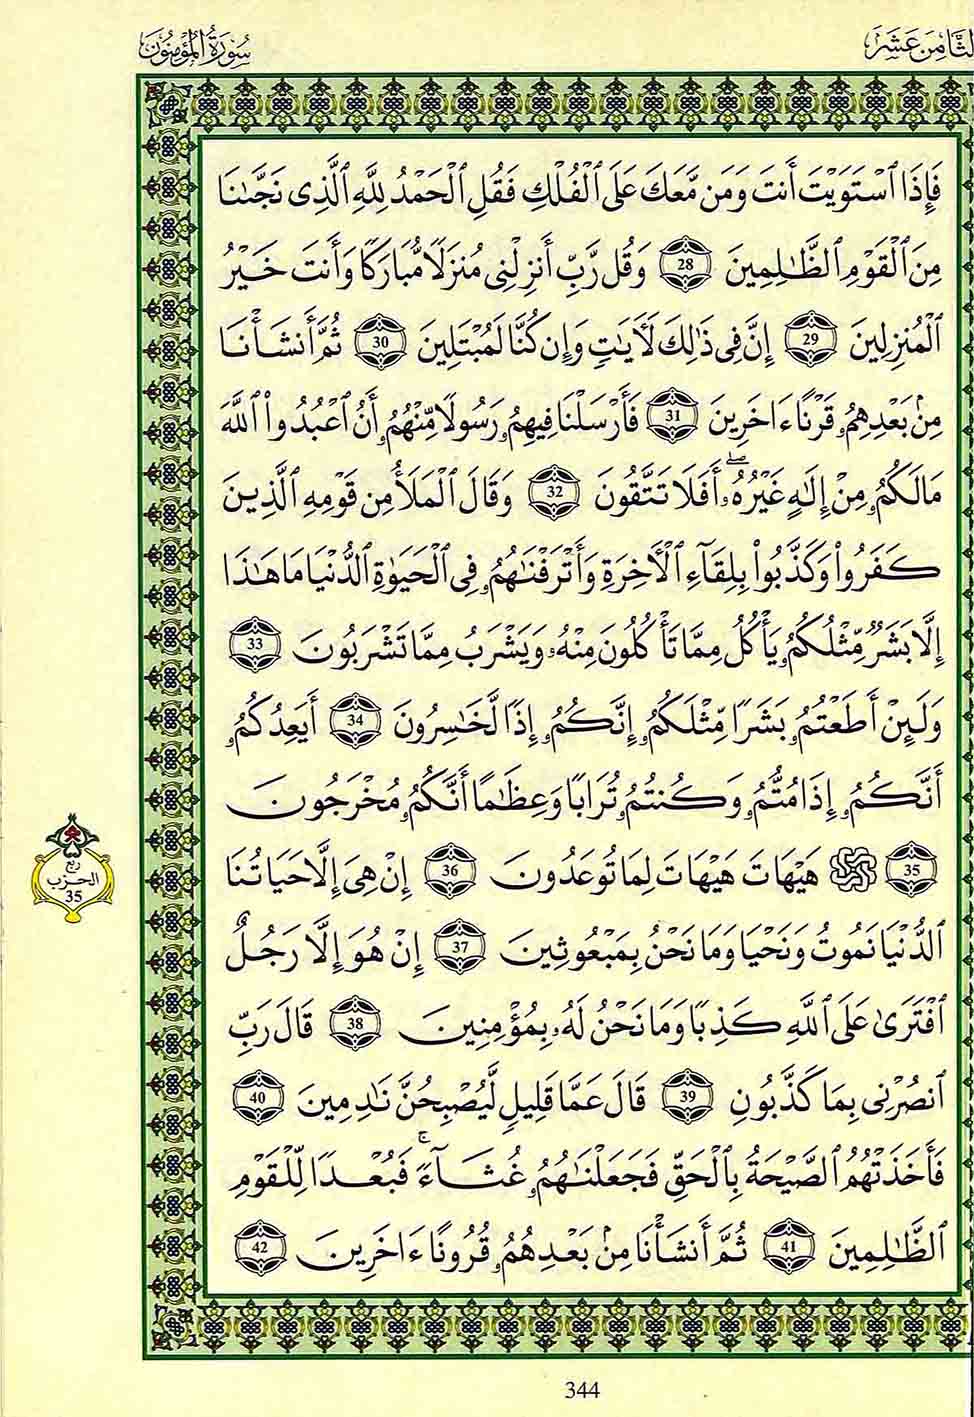 الثَّامِنَ عَشَرَ
سُورَةُ الْمُؤْمِنُونَ
فَإِذَا ٱسْتَوَيْتَ أَنتَ وَمَن مَّعَكَ عَلَى ٱلْفُلْكِ فَقُلِ ٱلْحَمْدُ لِلَّهِ ٱلَّذِى نَجَّىٰنَا
مِنَ ٱلْقَوْمِ ٱلظَّـٰلِمِينَ 28 وَقُل رَّبِّ أَنزِلْنِى مُنزَلًا مُّبَارَكًا وَأَنتَ خَيْرُ
ٱلْمُنزِلِينَ 29 إِنَّ فِى ذَٰلِكَ لَأَيَـٰتٍ وَإِن كُنَّا لَمُبْتَلِينَ 30 ثُمَّ أَنشَأْنَا
مِنۢ بَعْدِهِمُۥ قَرْنًا ءَاخَرِينَ 31 فَأَرْسَلْنَا فِيهِمُۥ رَسُولًا مِّنْهُمُۥ أَنُ ٱعْبُدُوا۟ ٱللَّهَ
مَا لَكُمُۥ مِنْ إِلَـٰهٍ غَيْرُهُۥٓ أَفَلَا تَتَّقُونَ 32 وَقَالَ ٱلْمَلَأُ مِن قَوْمِهِ ٱلَّذِينَ
كَفَرُوا۟ وَكَذَّبُوا۟ بِلِقَآءِ ٱلْأَخِرَةِ وَأَتْرَفْنَـٰهُمُۥ فِى ٱلْحَيَوٰةِ ٱلدُّنْيَا مَا هَـٰذَا
إِلَّا بَشَرٌ مِّثْلُكُمُۥ يَأْكُلُ مِمَّا تَأْكُلُونَ مِنْهُۥ وَيَشْرَبُ مِمَّا تَشْرَبُونَ 33
وَلَئِنْ أَطَعْتُمُۥ بَشَرًا مِّثْلَكُمُۥ إِنَّكُمُۥ إِذًا لَّخَـٰسِرُونَ 34 أَيَعِدُكُمُۥ
أَنَّكُمُۥ إِذَا مُتُّمُۥ وَكُنتُمُۥ تُرَابًا وَعِظَـٰمًا أَنَّكُمُۥ مُخْرَجُونَ
35 هَيْهَاتَ هَيْهَاتَ لِمَا تُوعَدُونَ 36 إِنْ هِىَ إِلَّا حَيَاتُنَا
ربع
الحزب
35
ٱلدُّنْيَا نَمُوتُ وَنَحْيَا وَمَا نَحْنُ بِمَبْعُوثِينَ 37 إِنْ هُوَ إِلَّا رَجُلٌ
ٱفْتَرَىٰ عَلَى ٱللَّهِ كَذِبًا وَمَا نَحْنُ لَهُۥ بِمُؤْمِنِينَ 38 قَالَ رَبِّ
ٱنصُرْنِى بِمَا كَذَّبُونِ 39 قَالَ عَمَّا قَلِيلٍ لَّيُصْبِحُنَّ نَـٰدِمِينَ 40
فَأَخَذَتْهُمُ ٱلصَّيْحَةُ بِٱلْحَقِّ فَجَعَلْنَـٰهُمُۥ غُثَآءً ۚ فَبُعْدًا لِّلْقَوْمِ
ٱلظَّـٰلِمِينَ 41 ثُمَّ أَنشَأْنَا مِنۢ بَعْدِهِمُۥ قُرُونًا ءَاخَرِينَ 42
344